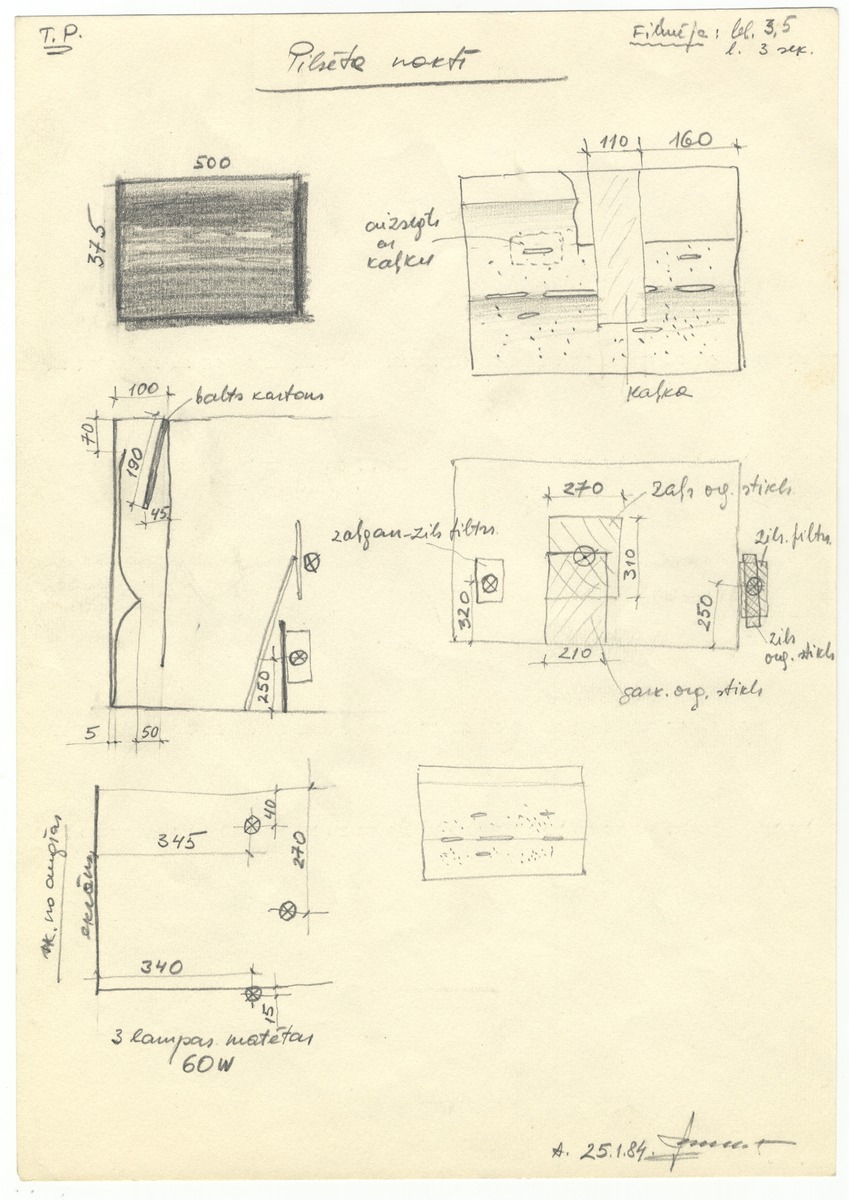 T. P.
Pilsēta naktī
Filmēja: bl. 3,5
l. 3 sek.
500
375
110
160
aizsegts
ar
kaļku
kaļka
100
balts kartons
70
190
45
250
5
50
270
zaļš org. stikls
zaļgan-zils filtrs
310
320
250
zils. filtrs
zils
org. stikls
210
sark. org. stikls
345
40
270
sk. no augšas
ekrāns
340
15
3 lampas matētas
60W
A. 25.1.84.